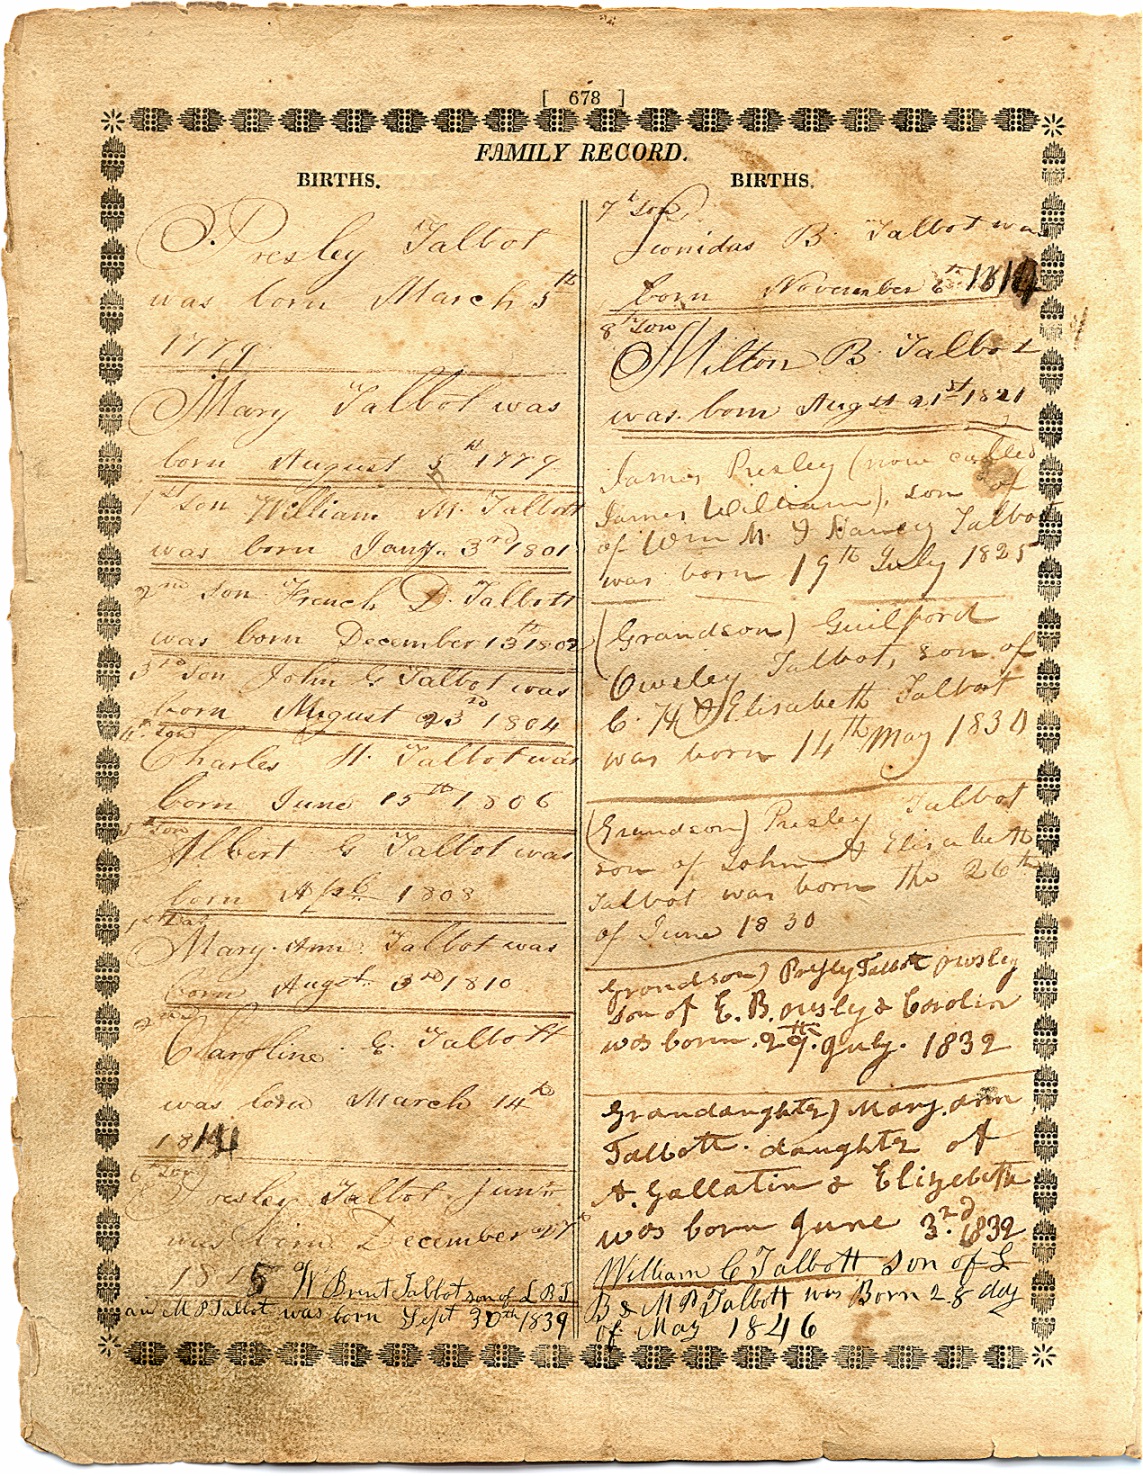 [ 678 ]
FAMILY RECORD.
BIRTHS.
P. Presley Talbot
was born March 5th
1779
Mary Talbot was
born August 5th 1779
1st Son William M. Talbott
was born Jany. 3rd 1801
2nd son French D. Talbott
was born December 13th 1802
3rd Son John G Talbot was
born August 23rd 1804
4th Son
Charles H. Talbot was
born June 15th 1806
5th Son
Albert G Talbot was
born Apl. 1808
1st Da
Mary Ann Talbot was
born Augst. 3rd 1810
2nd
Caroline E. Talbott
was born March 14th
1814
6th Son
Presley Talbot Junr
was born December 27th
1815 W Brent Talbot son of L B T
and M P Talbot was born Sept 30th 1839
BIRTHS.
7th Son
Leonidas B. Talbot was
born November 6th 1819
8th Son
Milton B. Talbot
was born Augst 21st 1821
James Presley (now called
James William), son of
of Wm M. & Nancy Talbot
was born 19th July 1825
(Grandson) Guilford
Owsley Talbot, son of
C. H. & Elisabeth Talbot
was born 14th May 1830
(Grandson) Presley Talbot
son of John & Elisabeth
Talbot was born the 26th
of June 1830
Grandson) Presly Talbott owsley
son of E. B. owsly & Carolin
was born. 27th. July. 1832
Grandaughte) Mary. ann
Talbott. daughte of
A. Gallatin & Elizebeth
was born June 3rd. 1832
William C Talbott son of L
B & M P Talbott was Born 28 day
of May 1846